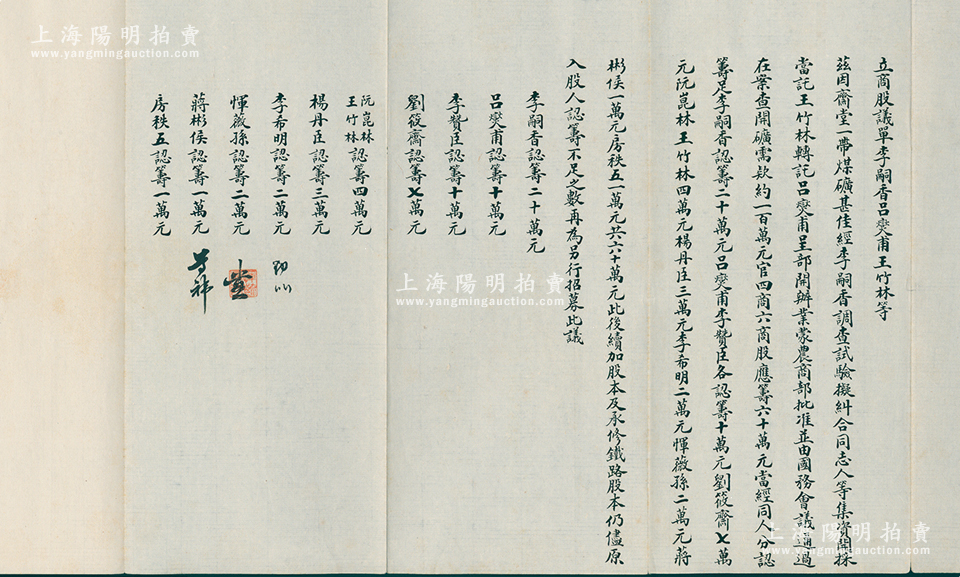 立商股議單李嗣香呂爕甫王竹林等
茲因齋堂一帶煤礦甚佳經李嗣香調查試驗擬糾合同志人等集資開採
當託王竹林轉託呂爕甫呈部開辦業蒙農商部批准並由國務會議通過
在案查開礦需欵約一百萬元官四商六商股應籌六十萬元當經同人分認
籌足李嗣香認籌二十萬元呂爕甫李贊臣各認籌十萬元劉筱齋七萬
元阮崑林王竹林四萬元楊丹臣三萬元李希明二萬元惲薇孫二萬元蔣
彬侯一萬元房秩五一萬元共六十萬元此後續加股本及承修鐵路股本仍儘原
入股人認籌不足之數再為另行招募此議
李嗣香認籌二十萬元
呂爕甫認籌十萬元
李贊臣認籌十萬元
劉筱齋認籌七萬元
阮崑林
王竹林
認籌四萬元
楊丹臣認籌三萬元
李希明認籌二萬元
惲薇孫認籌二萬元
蔣彬侯認籌一萬元
房秩五認籌一萬元
上海陽明拍賣
www.yangmingauction.com
上海陽明拍賣
www.yangmingauction.com
上海陽明拍賣
www.yangmingauction.com
上海陽明拍賣
www.yangmingauction.com